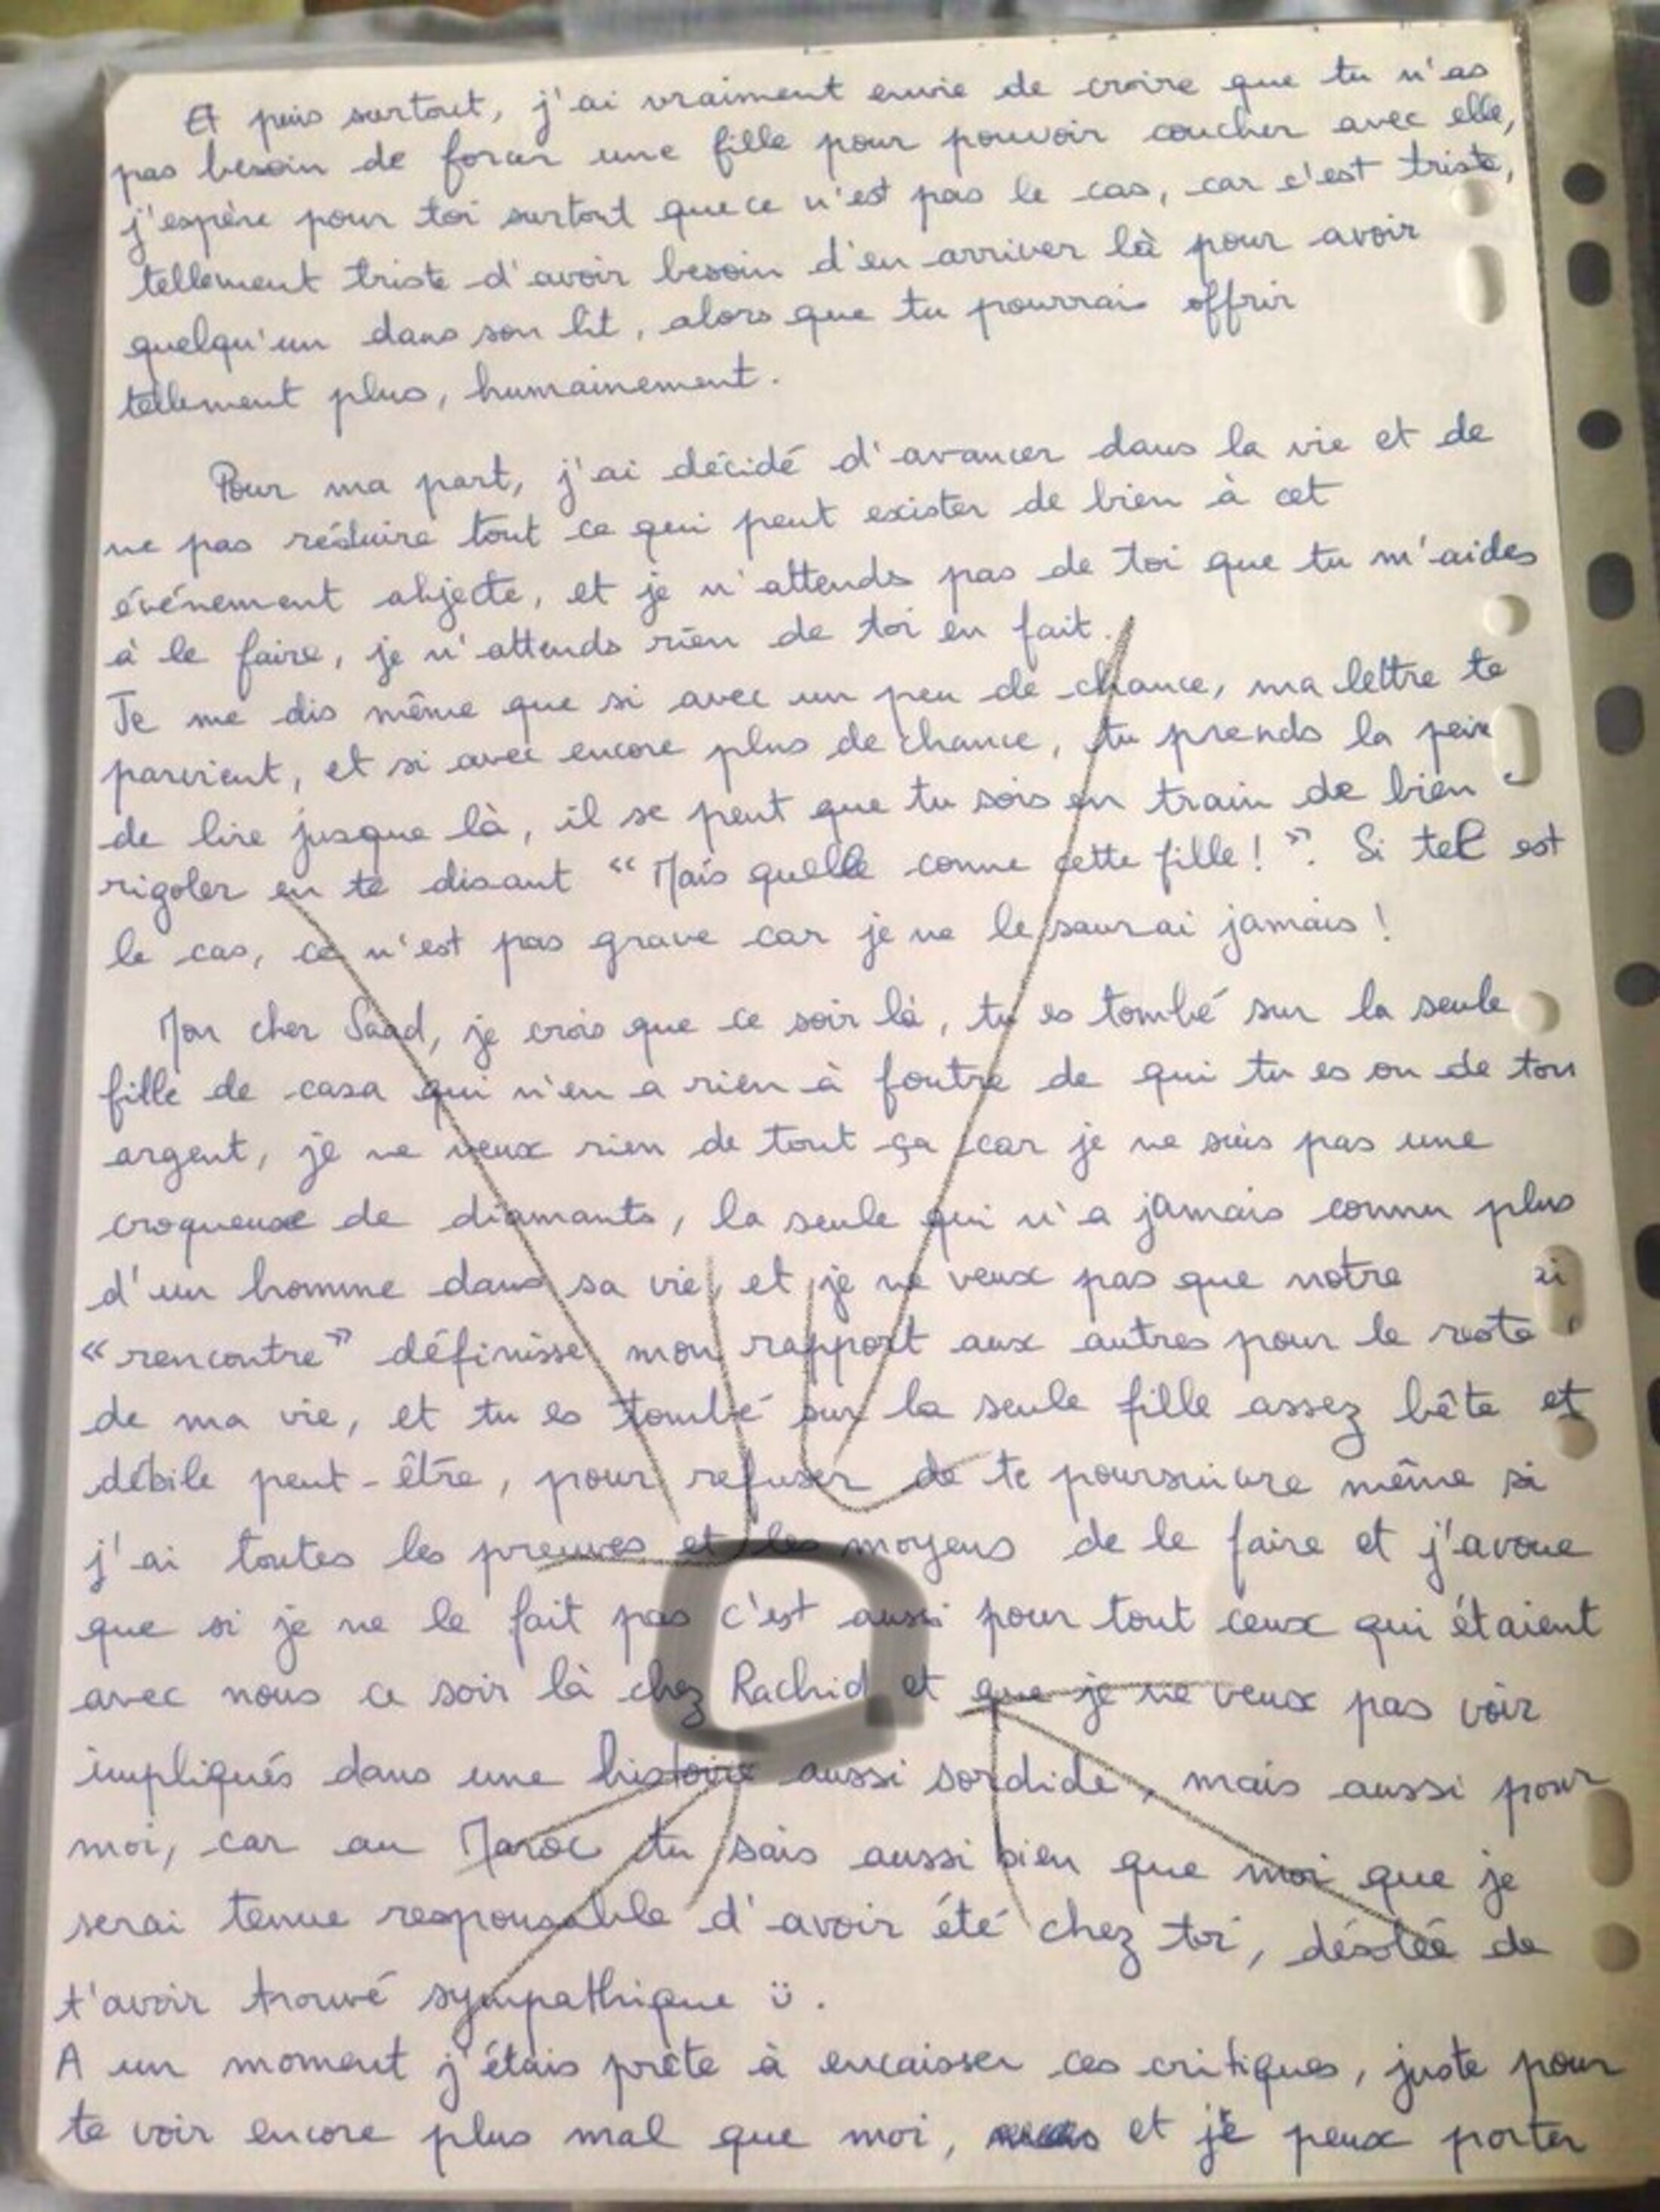 Et puis surtout, j'ai vraiment envie de croire que tu n'as
pas besoin de forcer une fille pour pouvoir coucher avec elle,
j'espère pour toi surtout que ce n'est pas le cas, car c'est triste,
tellement triste d'avoir besoin d'en arriver là pour avoir
quelqu'un dans son lit, alors que tu pourrais offrir
tellement plus, humainement.
Pour ma part, j'ai décidé d'avancer dans la vie et de
ne pas réduire tout ce qui peut exister de bien à cet
événement abjecte, et je n'attends pas de toi que tu m'aides
à le faire, je n'attends rien de toi en fait.
Je me dis même que si avec un peu de chance, ma lettre te
parvient, et si avec encore plus de chance, tu prends la peine
de lire jusque là, il se peut que tu sois en train de bien
rigoler en te disant "Mais quelle conne cette fille !". Si tel est
le cas, ce n'est pas grave car je ne le saurai jamais !
Mon cher Saad, je crois que ce soir là, tu es tombé sur la seule
fille de casa qui n'en a rien à foutre de qui tu es ou de ton
argent, je ne veux rien de tout ça car je ne suis pas une
croqueuse de diamants, la seule qui n'a jamais connu plus
d'un homme dans sa vie, et je ne veux pas que notre
"rencontre" définisse mon rapport aux autres pour le reste
de ma vie, et tu es tombé sur la seule fille assez bête et
débile peut-être, pour refuser de te poursuivre même si
j'ai toutes les preuves et les moyens de le faire et j'avoue
que si je ne le fait pas c'est aussi pour tout ceux qui étaient
avec nous ce soir là chez Rachid et que je ne veux pas voir
impliqués dans une histoire aussi sordide, mais aussi pour
moi, car au Maroc tu sais aussi bien que moi que je
serai tenue responsable d'avoir été chez toi, désolée de
t'avoir trouvé sympathique ü.
A un moment j'étais prête à encaisser ces critiques, juste pour
te voir encore plus mal que moi, et je peux porter